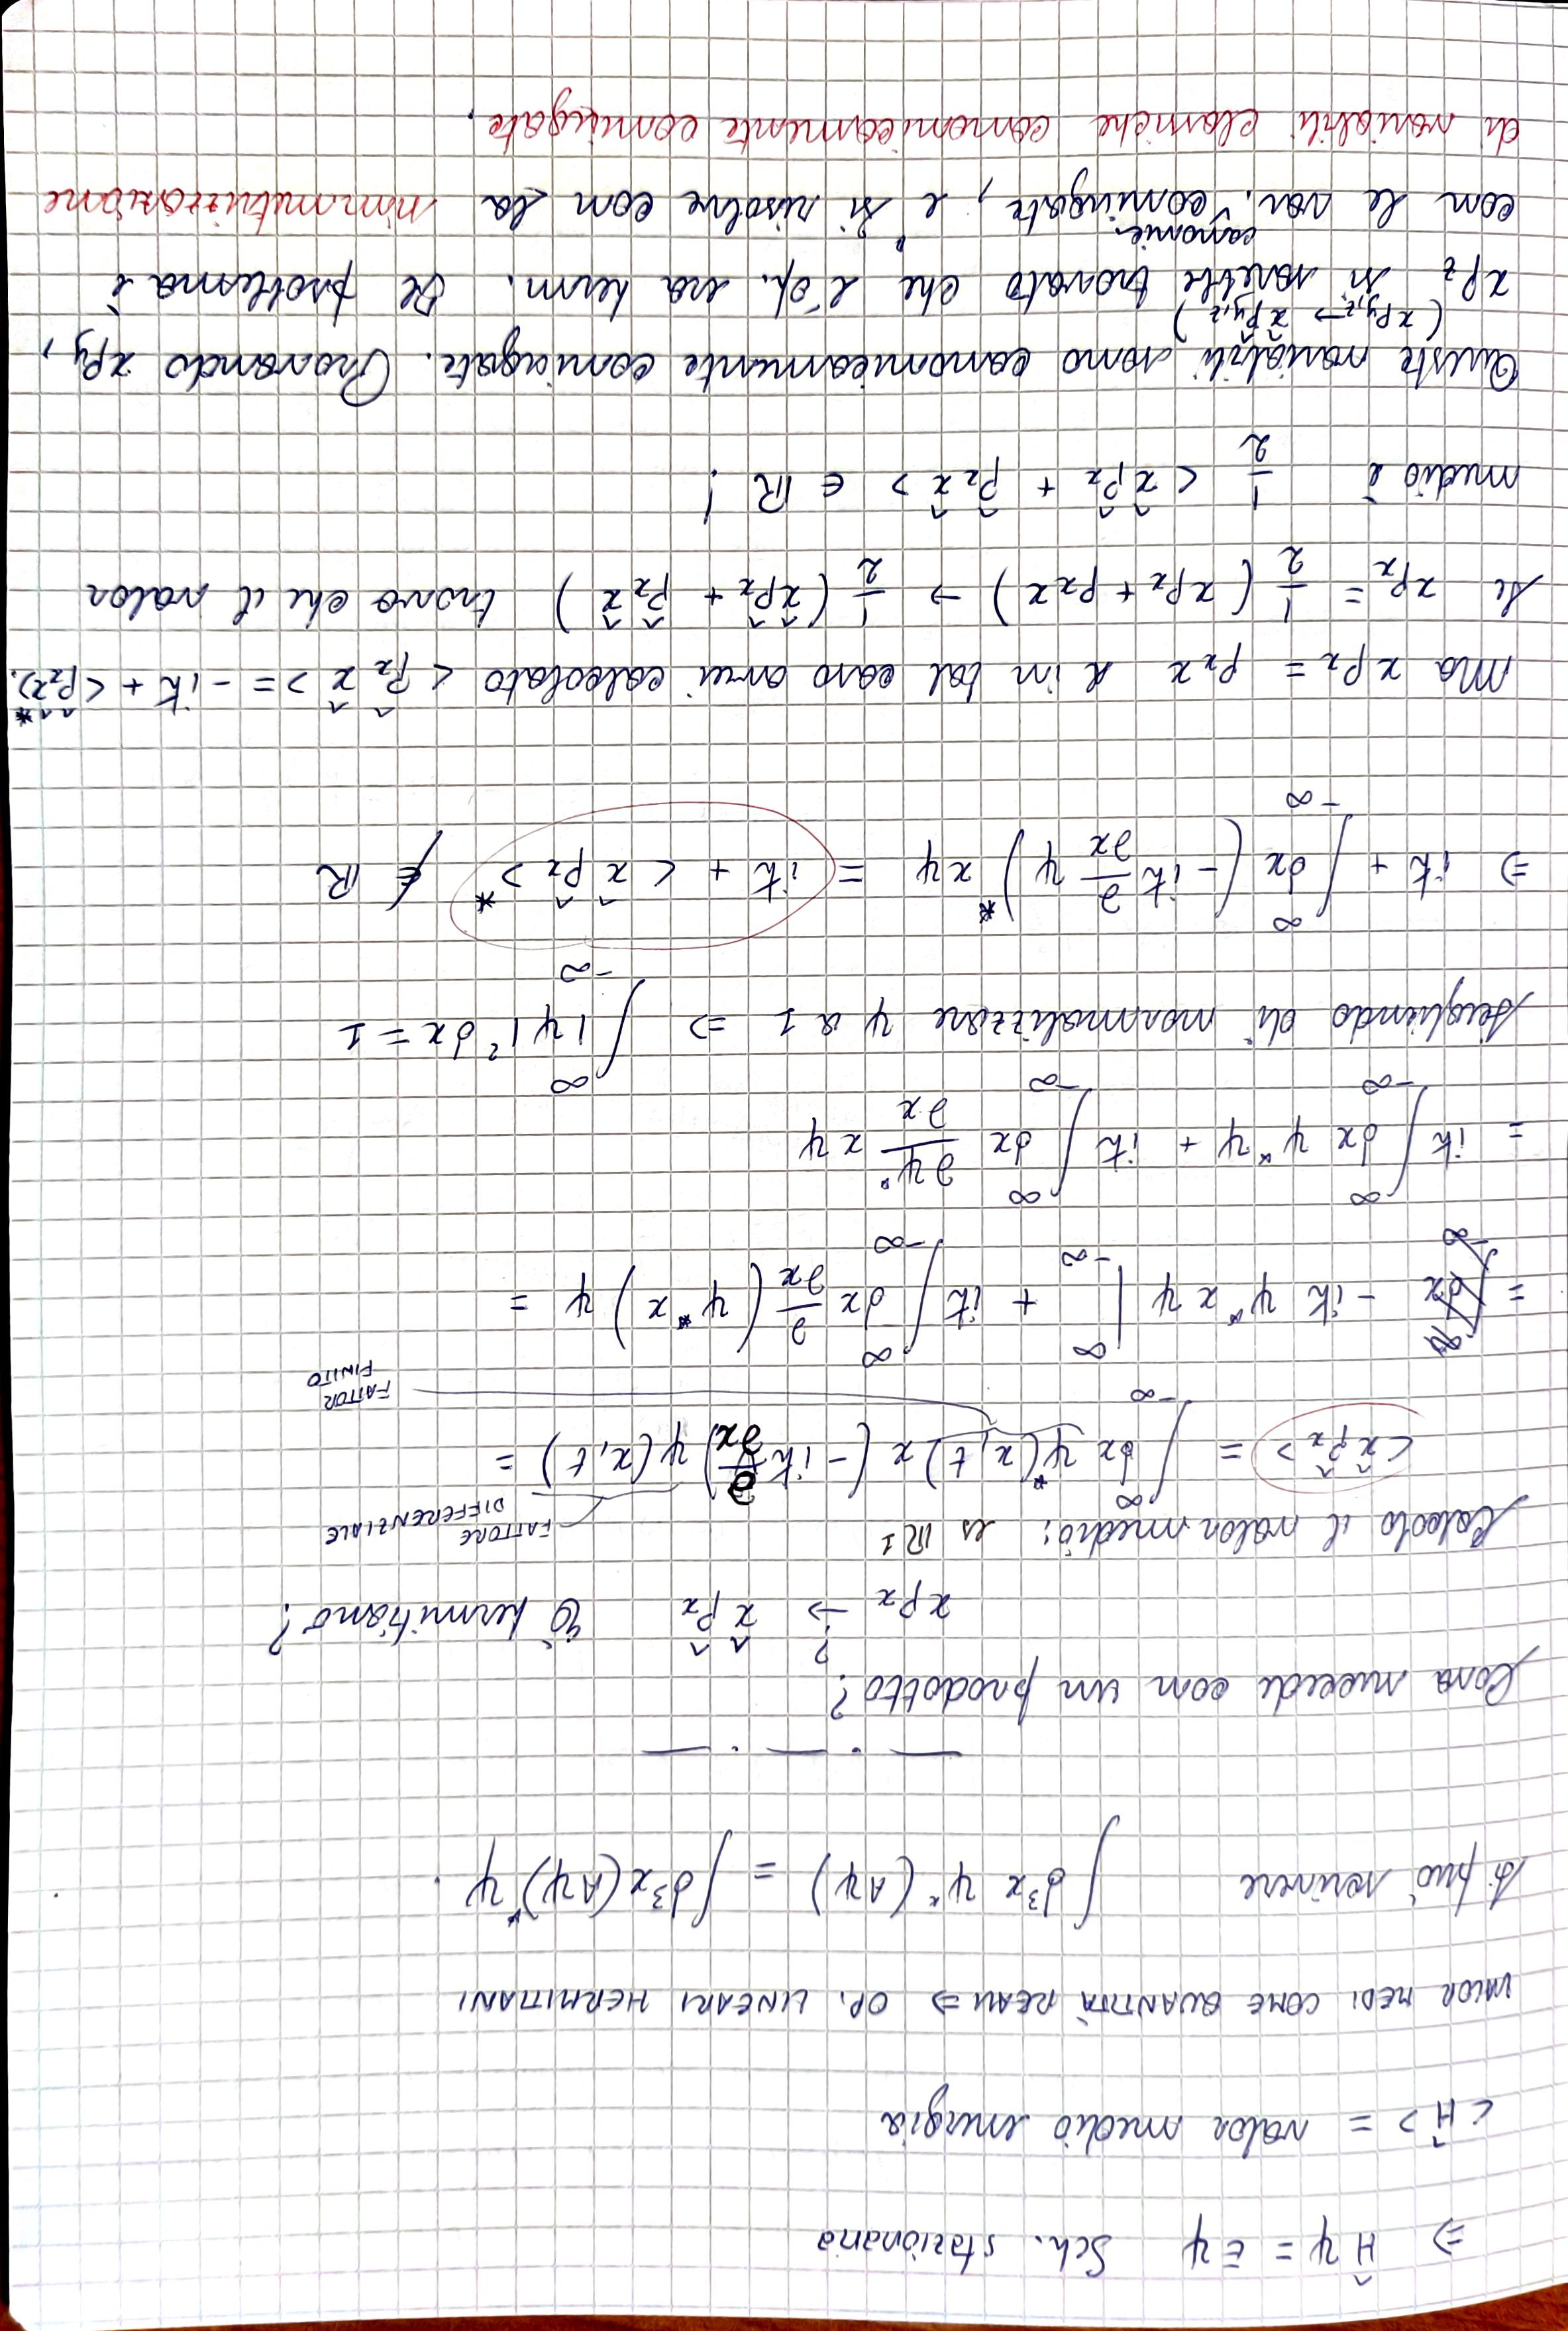 ⇒ Ĥψ = Eψ Sch. stazionaria
<Ĥ> = valor medio energia
VALOR MEDI COME QUANTITÀ REALI ⇒ OP. LINEARI HERMITIANI
Si può scrivere ∫d³x ψ*(Aψ) = ∫d³x(Aψ)*ψ.
Cosa succede con un prodotto?
xpₓ →? x̂p̂ₓ È hermitiano?
Calcolo il valor medio: es ℝ1
FATTORE DIFFERENZIALE
<x̂p̂ₓ> = ∫_{-∞}^{∞} dx ψ*(x,t) x (-iħ ∂/∂x) ψ(x,t) =
FATTOR FINITO
= -iħ ψ*xψ |_{-∞}^{∞} + iħ ∫_{-∞}^{∞} dx ∂/∂x (ψ*x)ψ =
= iħ ∫_{-∞}^{∞} dx ψ*ψ + iħ ∫_{-∞}^{∞} dx ∂ψ*/∂x xψ
Scegliendo di normalizzare ψ a 1 ⇒ ∫_{-∞}^{∞} |ψ|² dx = 1
⇒ iħ + ∫_{-∞}^{∞} dx (-iħ ∂/∂x ψ)* xψ = iħ + <x̂p̂ₓ>* ∉ ℝ
Ma xpₓ = pₓx e in tal caso avrei calcolato <p̂ₓx̂> = -iħ + <p̂ₓx̂>*.
Se xpₓ = 1/2 (xpₓ + pₓx) → 1/2 (x̂p̂ₓ + p̂ₓx̂) trovo che il valor
medio è 1/2 <x̂p̂ₓ + p̂ₓx̂> ∈ ℝ!
Queste variabili sono canonicamente coniugate. Provando xp_y,
(xp_{y,z} → x̂p̂_{y,z})
xp_z si sarebbe trovato che l'op. era herm. Il problema è
canonic.
con le var. coniugate, e si risolve con la simmetrizzazione
di variabili classiche canonicamente coniugate.